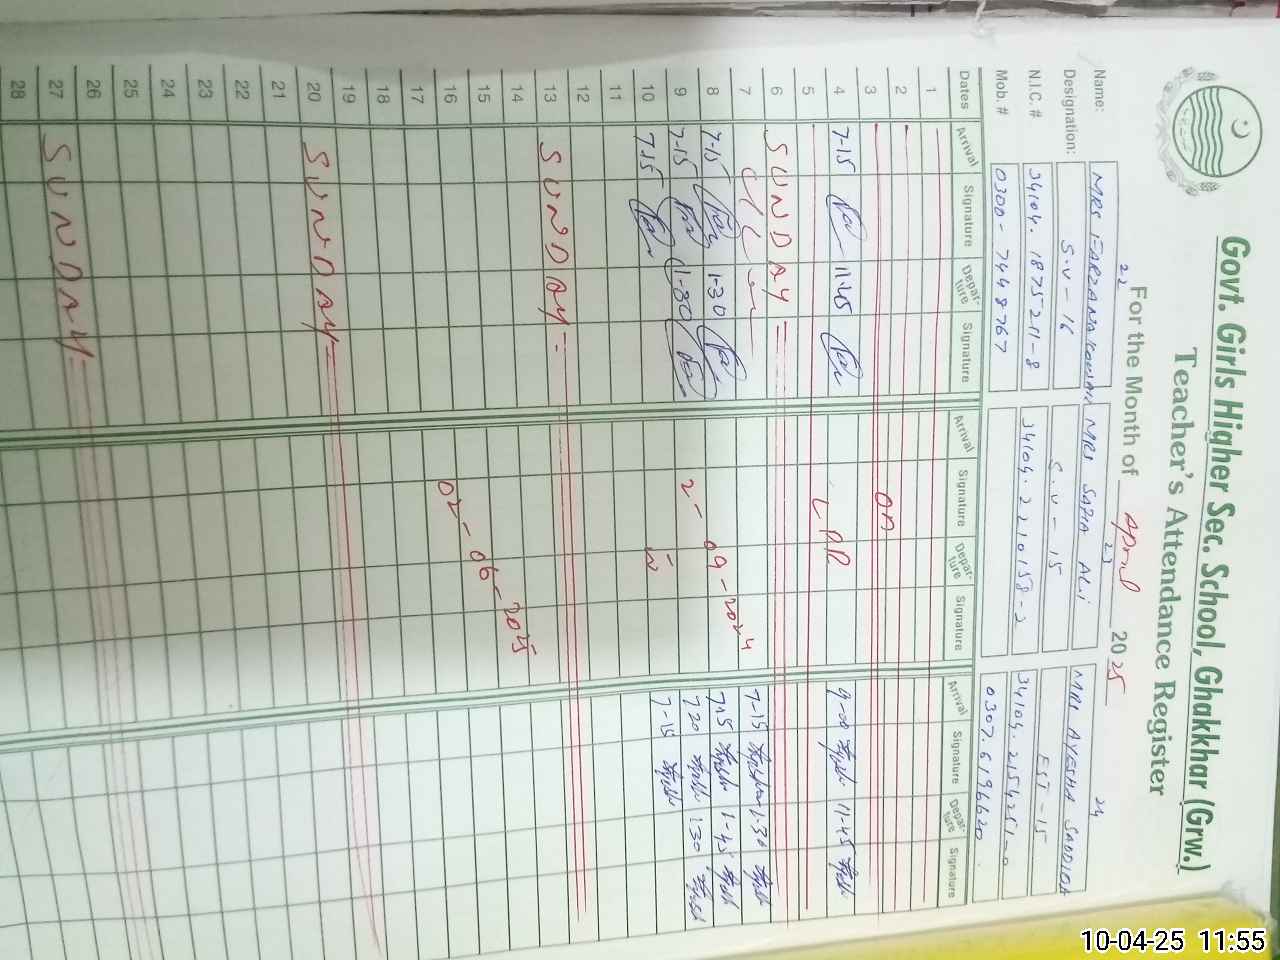 Govt. Girls Higher Sec. School, Ghakkhar (Grw.)
Teacher's Attendance Register
For the Month of April 2025
22 23 24
Name: MRS FARZANA KOUSAR MRS SADIA ALI MRS AYESHA SADDIQA
Designation: S.V - 16 S.V - 15 EST - 15
N.I.C. # 34104.1875211-8 34104.2210158-2 34104.2154251-0
Mob. # 0300-7448767 0307.6196620
Dates Arrival Signature Depar-ture Signature Arrival Signature Depar-ture Signature Arrival Signature Depar-ture Signature
1
2
3 on
4 7-15 11-45 9-00 11-45
5 LPR
6 SUNDAY
7 7-15 1-30
8 7-15 1-30 2-09-2024 7-15 1-45
9 7-15 1-30 7-20 1-30
10 7-15 to 7-15
11
12
13 SUNDAY
14
15 02-06-2025
16
17
18
19
20 SUNDAY
21
22
23
24
25
26
27 SUNDAY
28
10-04-25 11:55